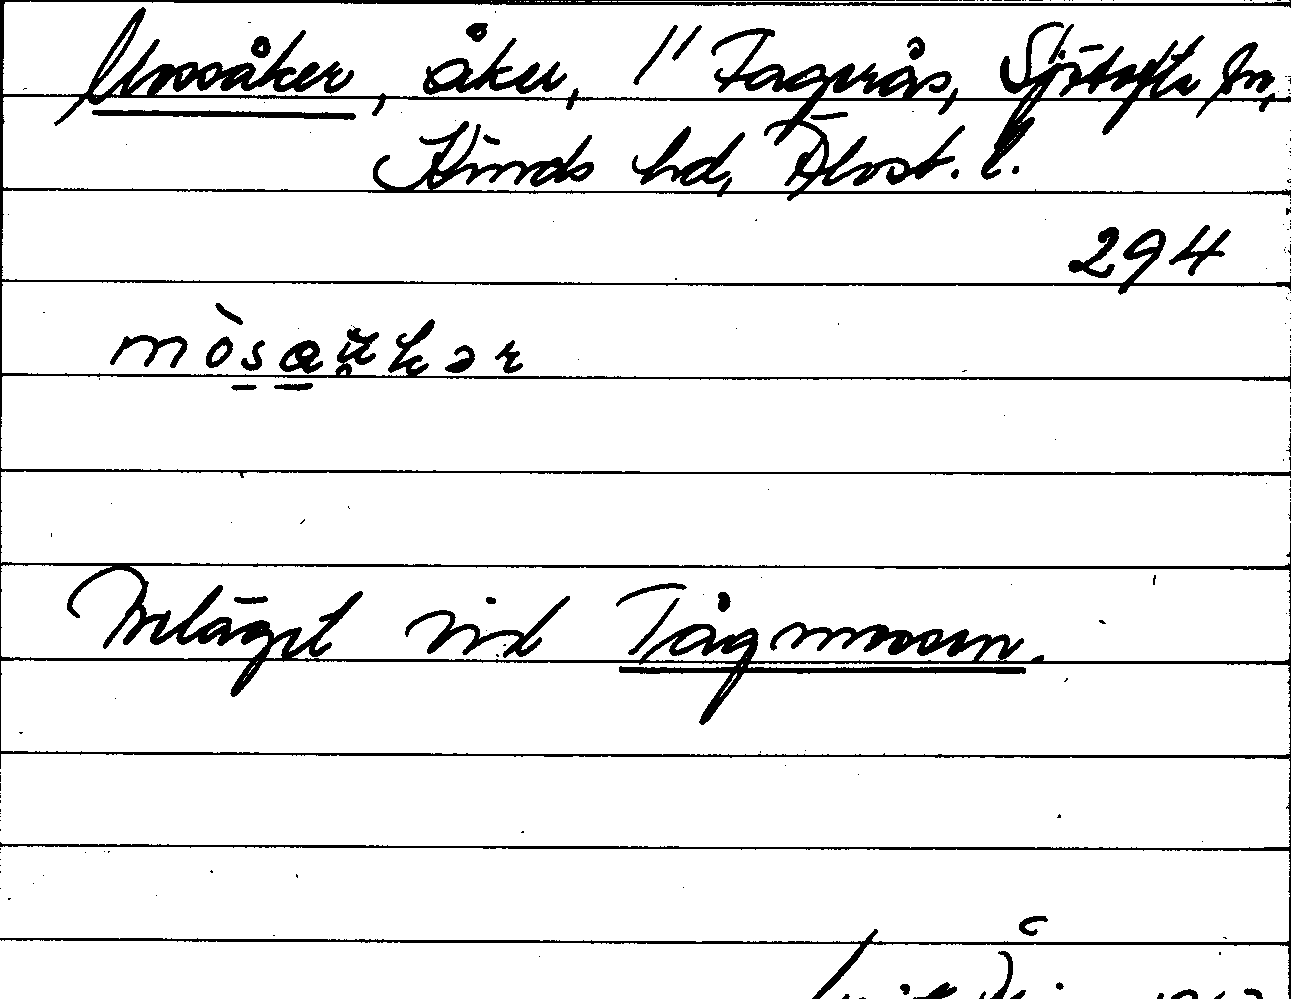 Mossåker, åker, 1" Fagerås, Sjötofta sn,
Kinds hd, Älvsb. l.
294
mòsaukər
Beläget vid Tågmossen.